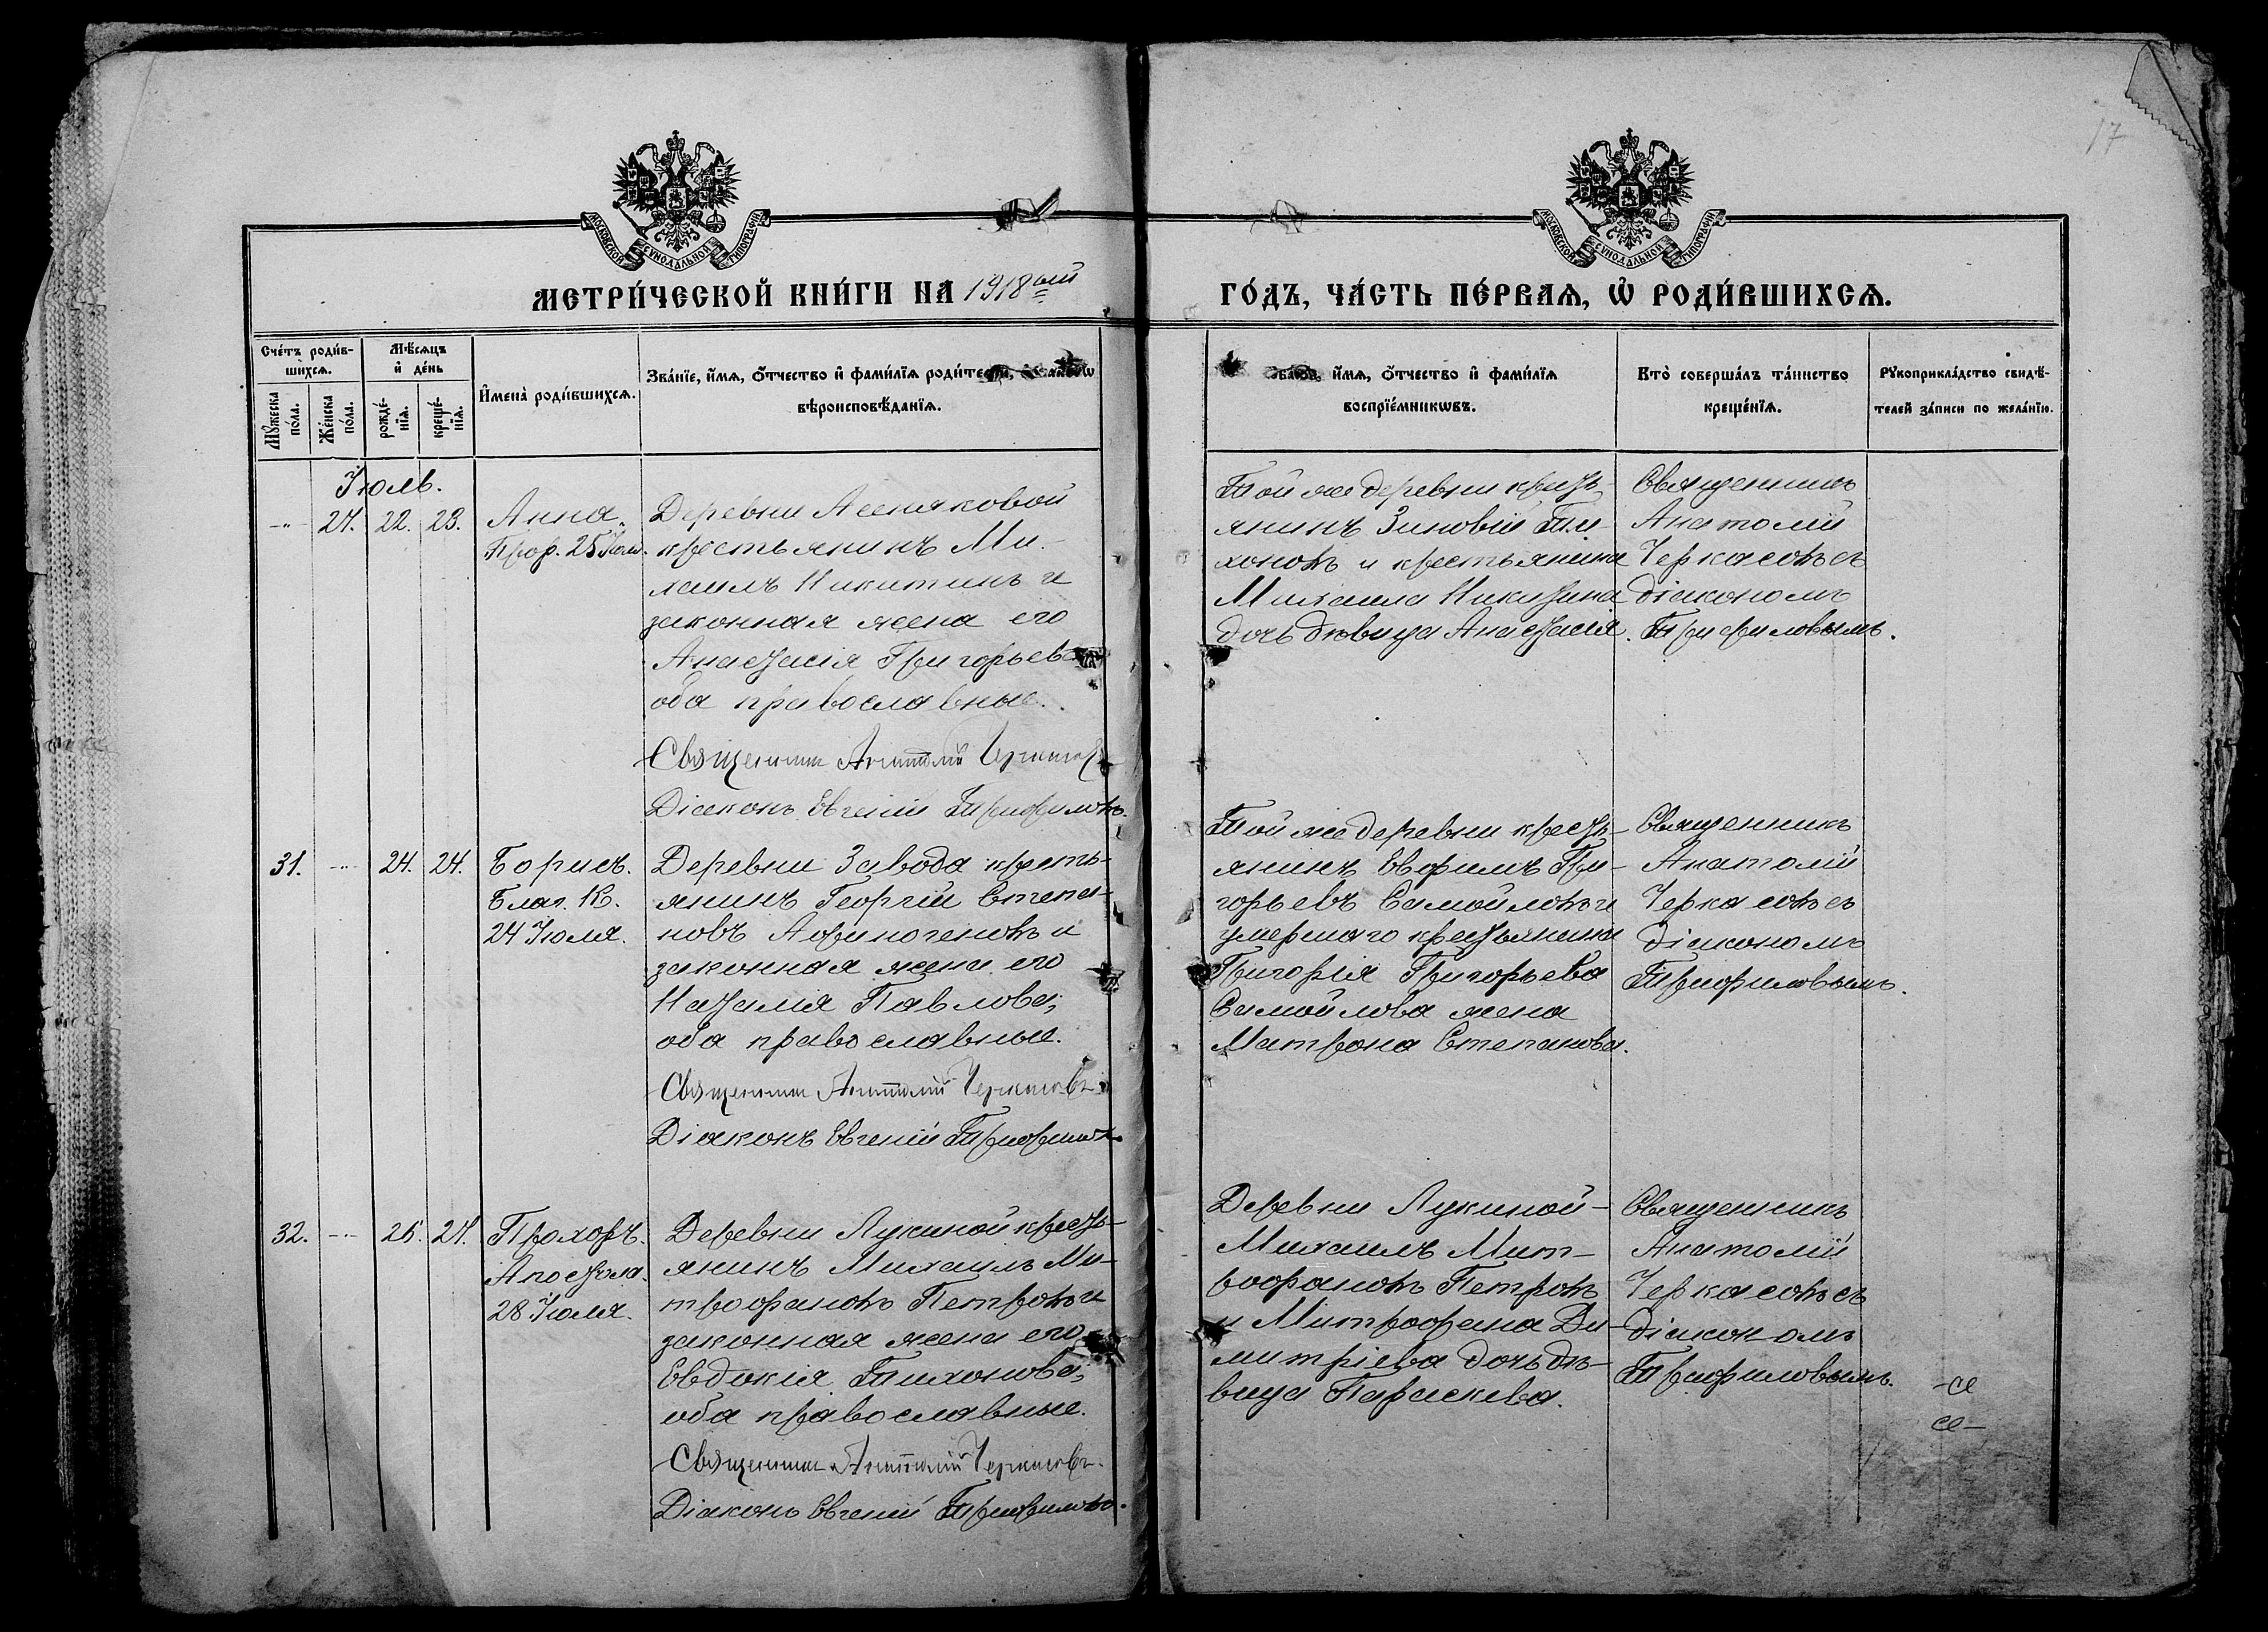 17
МОСКОВСКОЙ СѴНОДАЛЬНОЙ ТИПОГРАФІИ
МОСКОВСКОЙ СѴНОДАЛЬНОЙ ТИПОГРАФІИ
МЕТРИ́ЧЕСКОЙ КНИ́ГИ НА 1918ый
ГО́ДЪ, ЧА́СТЬ ПЕ́РВАѦ, Ѡ РОДИ́ВШИХСѦ.
Сче́тъ роди́в-
шихсѧ.
Мѣ́сѧцъ
и де́нь
Мꙋ́жеска
по́ла.
Же́нска
по́ла.
рожде́-
нїѧ.
креще́-
нїѧ.
И҆мена̀ роди́вшихсѧ.
Зва́нїе, и҆́мѧ, ѻ҆́тчество и҆ фами́лїѧ роди́те
вѣроисповѣ́данїѧ.
и҆́мѧ, ѻ҆́тчество и҆ фами́лїѧ
воспрїе́мникѡвъ.
Кто̀ соверша́лъ та́инство
креще́нїѧ.
Рꙋкоприкла́дство свидѣ́-
телей за́писи по жела́нїю.
Іюль.
-"- 27. 22. 23. Анна,
Прор. 25 Іюл.
Деревни Асеняковой
крестьянинъ Ми-
хаилъ Никитинъ и
законная жена его
Анастасія Григорьева
оба православные.
Священникъ Анатолій Черкасовъ
Діаконъ Евгеній Трифиловъ.
Той же деревни крест-
янинъ Зиновій Ти-
хоновъ и крестьянина
Михаила Никитина
дочь дѣвица Анастасія.
Священникъ
Анатолій
Черкасовъ съ
діакономъ
Трифиловымъ.
31. -"- 24. 24. Борисъ.
Благ. К.
24 Іюля.
Деревни Завода кресть-
янинъ Георгій Степа-
новъ Афиногеновъ и
законная жена его
Наталія Павлова;
оба православные.
Священникъ Анатолій Черкасовъ
Діаконъ Евгеній Трифиловъ.
Той же деревни кресть-
янинъ Ефимъ Гри-
горьевъ Самойловъ и
умершаго крестьянина
Григорія Григорьева
Самойлова жена
Матрона Степанова.
Священникъ
Анатолій
Черкасовъ съ
діакономъ
Трифиловымъ.
32. -"- 26. 27. Прохоръ.
Апостола.
28 Іюля.
Деревни Лукиной кресть-
янинъ Михаилъ Ми-
трофановъ Петровъ и
законная жена его
Евдокія Тихонова;
оба православные.
Священникъ Анатолій Черкасовъ.
Діаконъ Евгеній Трифиловъ.
Деревни Лукиной-
Михаилъ Мит-
рофановъ Петровъ
и Митрофана Ди-
митріева дочь дѣ-
вица Параскева.
Священникъ
Анатолій
Черкасовъ съ
діакономъ
Трифиловымъ.